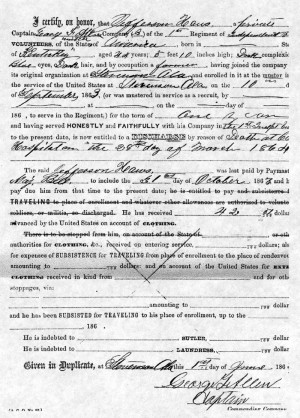 I certify, on honor, that Jefferson Haws a private
Captain George F. Allen Company (B) 1st Regiment of Independent
VOLUNTEERS, of the State of America born in
State of Kentucky, aged 44 years; 5 feet 10 inches high; Dark complexion
Blue eyes, Dark hair, and by occupation a Farmer, having joined the company
its original organization at Stevenson Ala and enrolled in it at the muster
the service of the United States at Stevenson Ala on the 10
of September, 1863, (or was mustered in service as a recruit, by
at on the day of
186 , to serve in the Regiment,) for the term of one year
and having served HONESTLY and FAITHFULLY with his Company in
to the present date, is now entitled to a DISCHARGE by reason of Death in the
Hospital on the 28th day of March 1864
The said Jefferson Haws was last paid by Paymaster
Maj. to include the 31st day of October 1863 and
pay due him from that time to the present date; he is entitled to pay and subsistence
TRAVELING to place of enrollment and whatever other allowances are authorized to volunteer
soldiers, or militia, so discharged. He has received 42 dollars
advanced by the United States on account of CLOTHING.
There is to be stopped from him, on account of the State of
authorities for CLOTHING, &c., received on entering service, dollars;
for expenses of SUBSISTENCE for TRAVELING from place of enrollment to the place of rendezvous
amounting to dollars; and on account of the United States for EXTRA
CLOTHING received in kind from and for other
stoppages, viz:
amounting to dollars
and he has been SUBSISTED for TRAVELING to his place of enrollment, up to the
186 .
He is indebted to SUTLER, dollars
He is indebted to LAUNDRESS, dollars
Given in Duplicate, at Stevenson Ala this 1st day of June 186
George F. Allen
Captain
Commanding Company